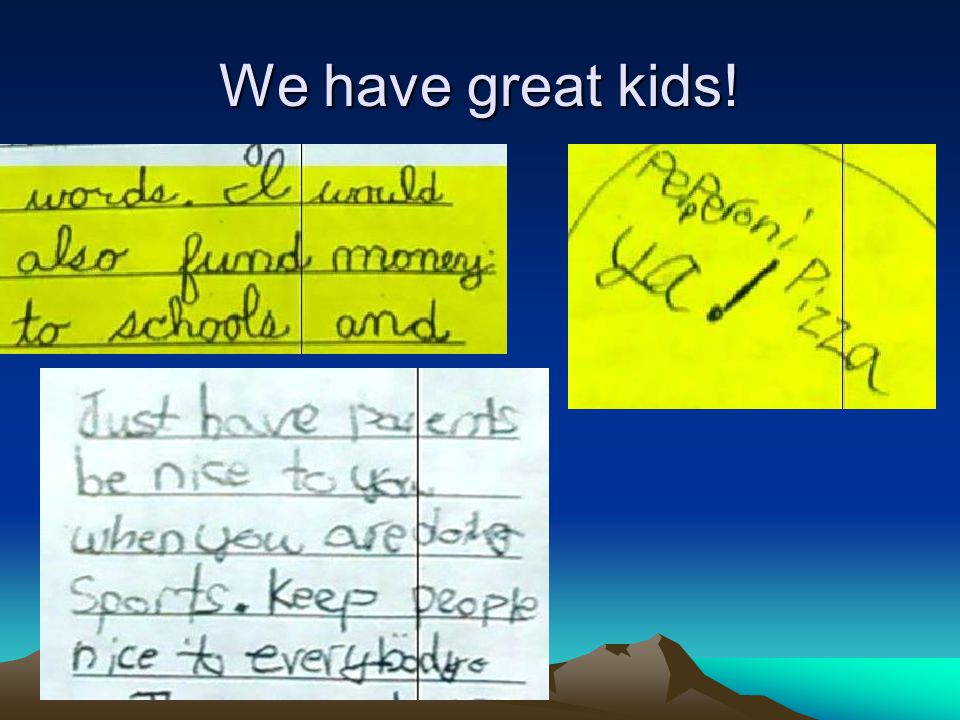 We have great kids!
words. I would
also fund money
to schools and
Pepperoni Pizza
ya!
Just have parents
be nice to you
when you are doing
Sports. Keep people
nice to everybody.